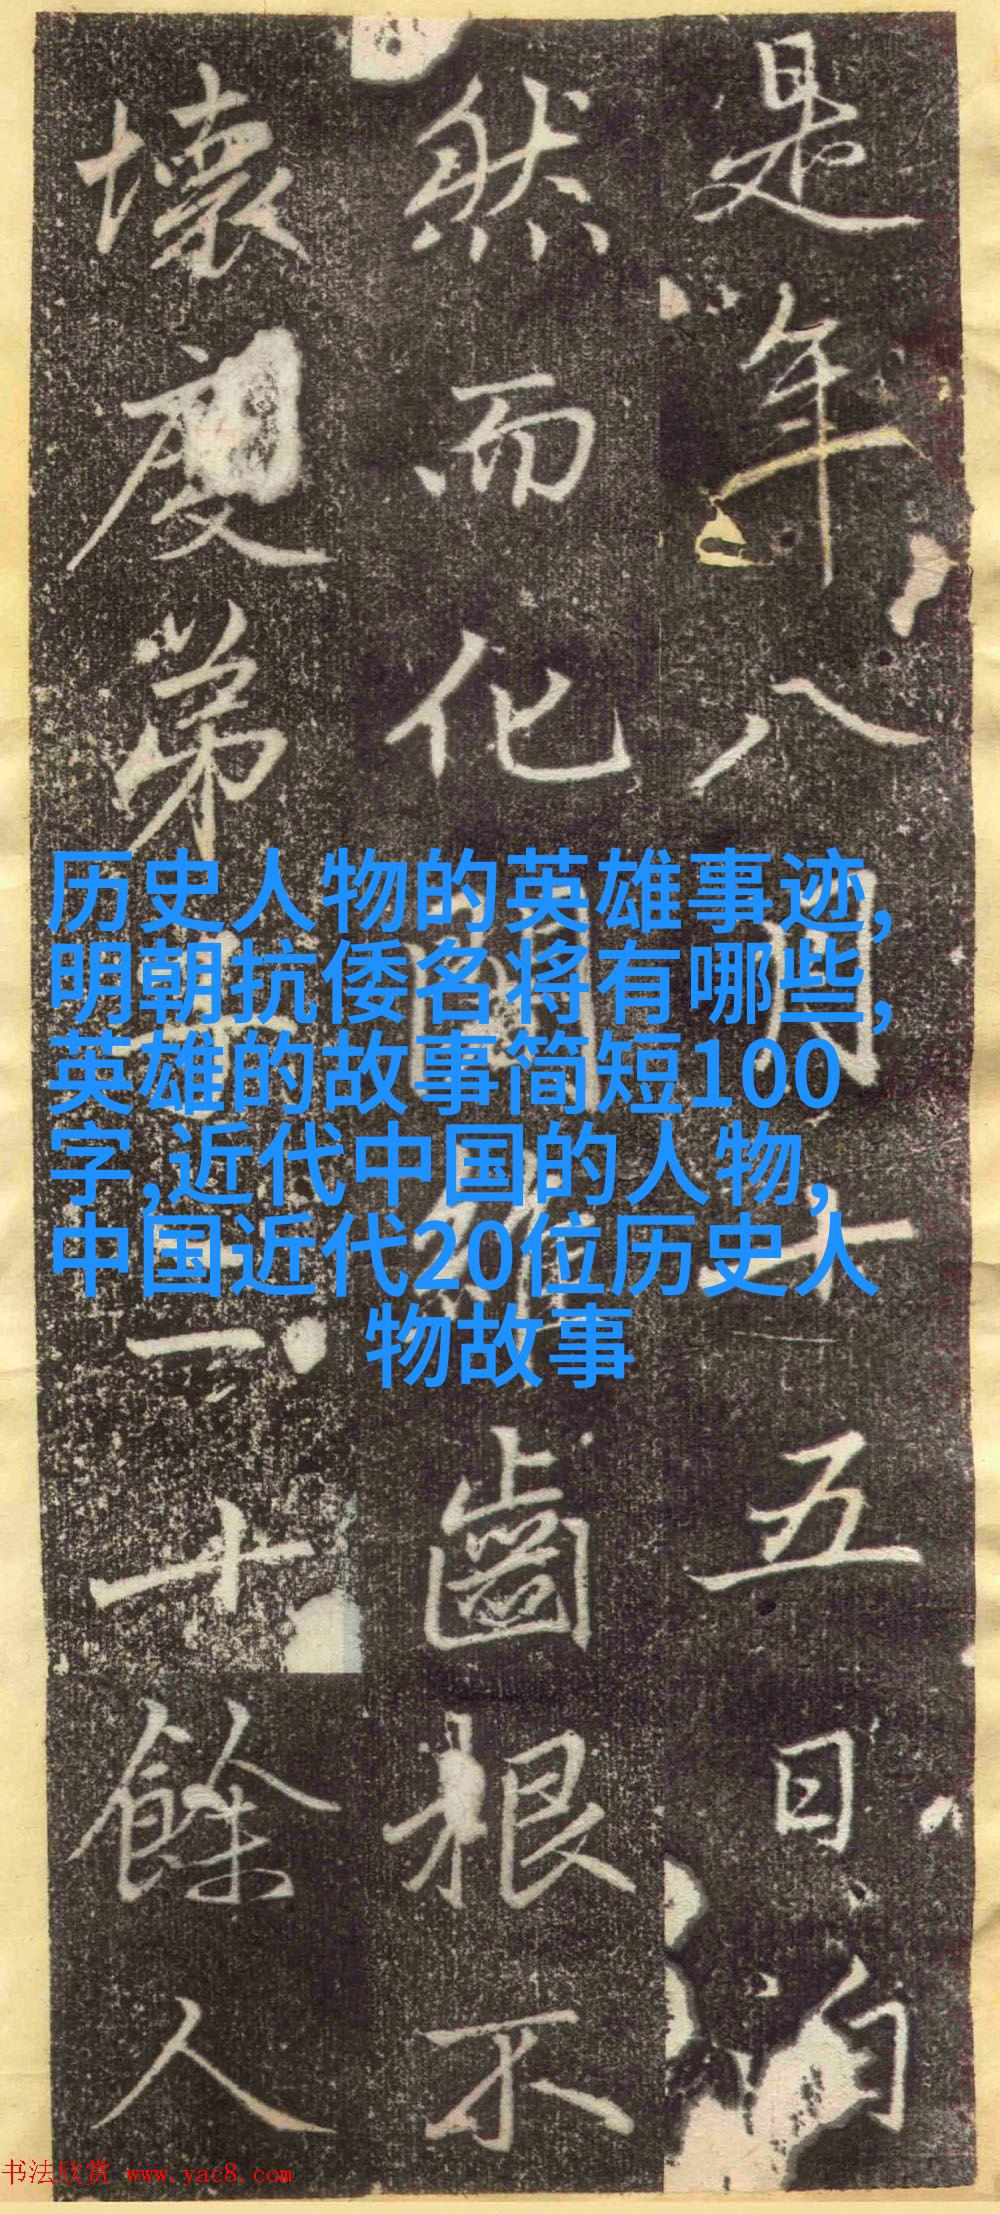 是年八月十五日
然而化齒根不
壞度弟十餘人
历史人物的英雄事迹,
明朝抗倭名将有哪些,
英雄的故事简短100
字,近代中国的人物,
中国近代20位历史人
物故事
书法欣赏 www.yac8.com